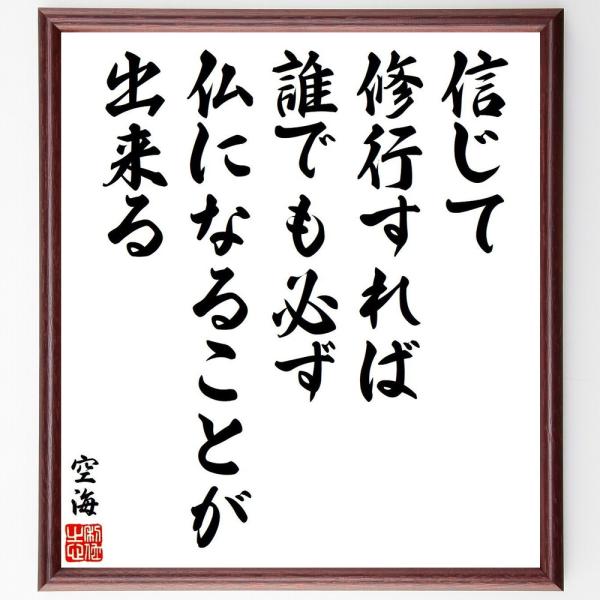 信じて
修行すれば
誰でも必ず
仏になることが
出来る
空海